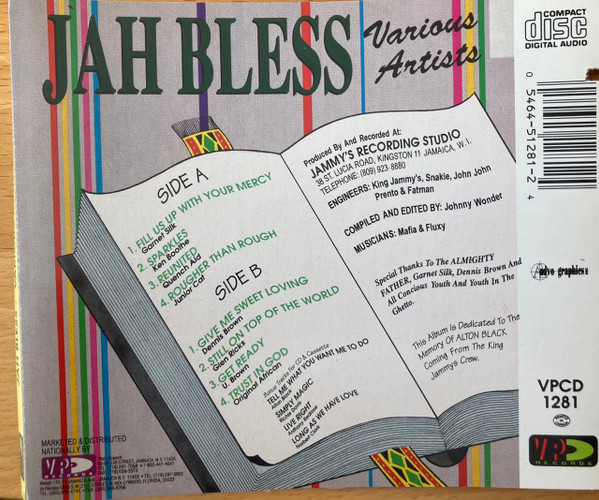 JAH BLESS
Various
Artists
COMPACT
disc
DIGITAL AUDIO
0 5464-51281-2 4
SIDE A
1. FILL US UP WITH YOUR MERCY
Garnet Silk
2. SPARKLES
Ken Boothe
3. REUNITED
Quench Aid
4. ROUGHER THAN ROUGH
Junior Cat
SIDE B
1. GIVE ME SWEET LOVING
Dennis Brown
2. STILL ON TOP OF THE WORLD
Glen Ricks
3. GET READY
U. Brown
4. TRUST IN GOD
Original African
Bonus Tracks For CD & Cassette
TELL ME WHAT YOU WANT ME TO DO
Alton Black
SIMPLY MAGIC
LIVE RIGHT
LONG AS WE HAVE LOVE
Produced By And Recorded At:
JAMMY'S RECORDING STUDIO
38 ST. LUCIA ROAD, KINGSTON 11 JAMAICA, W.I.
TELEPHONE: (809) 923-8880
ENGINEERS: King Jammy's, Snakie, John John
Prento & Fatman
COMPILED AND EDITED BY: Johnny Wonder
MUSICIANS: Mafia & Fluxy
Special Thanks To The ALMIGHTY
FATHER, Garnet Silk, Dennis Brown And
All Concious Youth And Youth In The
Ghetto.
This Album Is Dedicated To The
Memory Of ALTON BLACK
Coming From The King
Jammy's Crew.
VPCD
1281
VP
RECORDS
MARKETED & DISTRIBUTED
NATIONALLY BY
VP